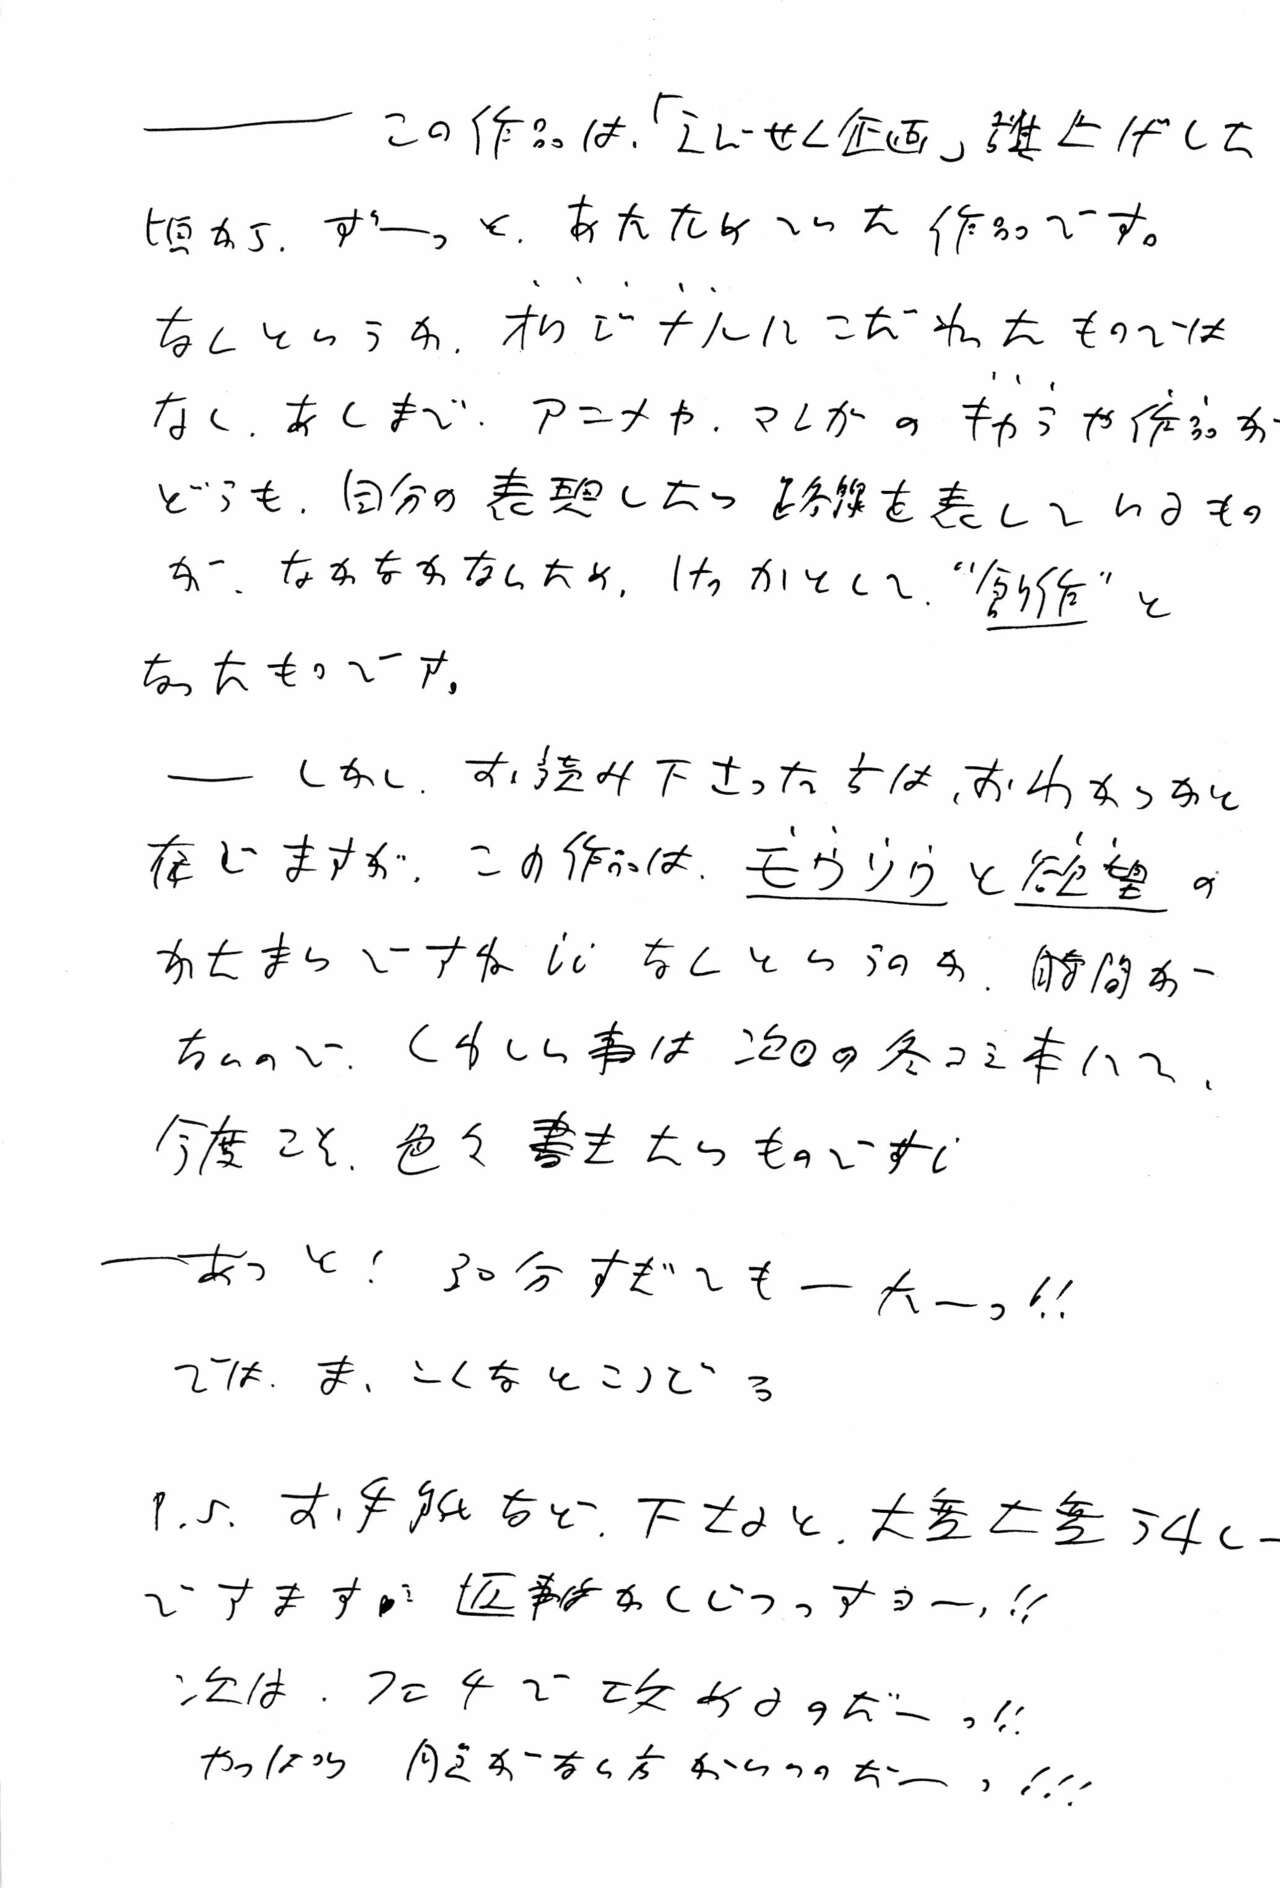 ―― この作品は、「えんせく企画」旗上げした
頃から、ずーっと、あたためていた作品です。
なんというか、オリジナルにこだわったものでは
なく、あくまで、アニメや、マンガのキャラや作品が
どうも、自分の表現したい路線を表しているもの
が、なかなかないため、けっかとして、“創作”と
なったものです。
―― しかし、お読み下さった方は、おわかりかと
存じますが、この作品は、モウソウと欲望の
かたまりですね!! なんというのか、時間が
ないので、くわしい事は次回の冬コミ本にて、
今度こそ、色々書きたいものです!
――あっと! 30分すぎてもーたーっ!!
では、ま、こんなところで
P.S. お手紙など、下さると、大変大変うれしー
でアます。返事はかくじつっすヨー!!
次は、フェチで攻めるのだーっ!!
やっぱり 目立がない方がいいのだーっ!!!